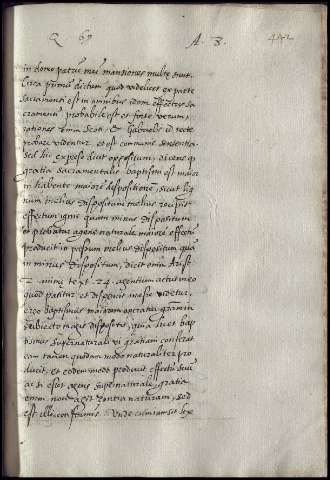 Q 69 A. 8. 442
in domo patris mei mansiones multe sunt.
Circa primum dictum quod videlicet ex parte
sacramenti est in omnibus idem effectus sa
cramenti probabile est et forte verum,
rationes enim Scoti, & Gabrielis id recte
probare videntur et est communis sententia
sed hic expresse dicit oppositum, dicens q
gratia sacramentalis baptismi est maior
in habente maiorem dispositionem, sicut lig
num melius dispositum melius recipit
effectum ignis quam minus dispositum
et probatur agens naturale maiorem effectum
producit in passum melius dispositum quam
in minus dispositum, dicit enim Arist.
2. animę text. 24. agentium actus in eo
quod patitur et disposito inesse videtur,
ergo baptismus maiorem operatur gratiam in
subiecto magis disposito, quia licet bap
tismus supernaturalis vi gratiam conferat
eam tamen quodam modo naturaliter pro
ducit, et eodem modo producit effectum suum
ac si esset agens supernaturale, gratia
enim non est contra naturam, sed
est illi conformis. Unde